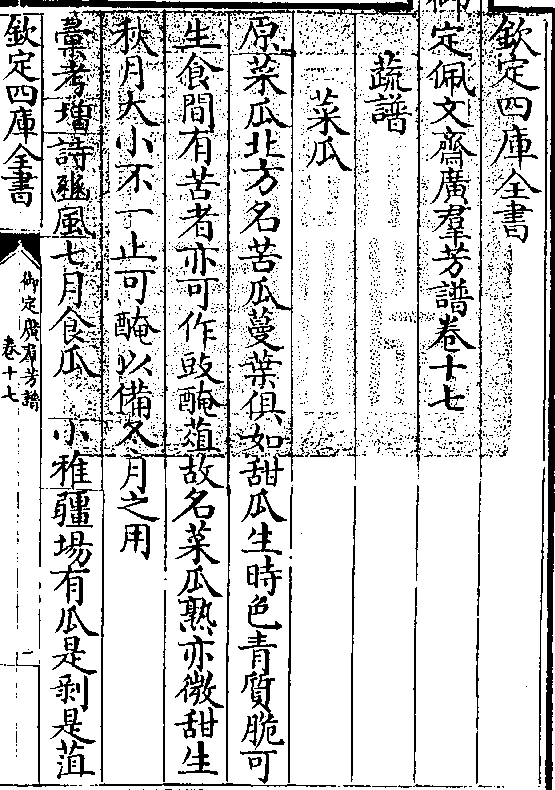 欽定四庫全書
御定佩文齋廣羣芳譜卷十七
蔬譜
菜瓜
原菜瓜北方名苦瓜蔓葉俱如甜瓜生時色青質脆可
生食間有苦者亦可作豉醃葅故名菜瓜熟亦微甜生
秋月大小不一止可醃以備冬月之用
彚考增詩豳風七月食瓜 小雅疆場有瓜是剥是菹
欽定四庫全書
御定廣羣芳譜
卷十七
一